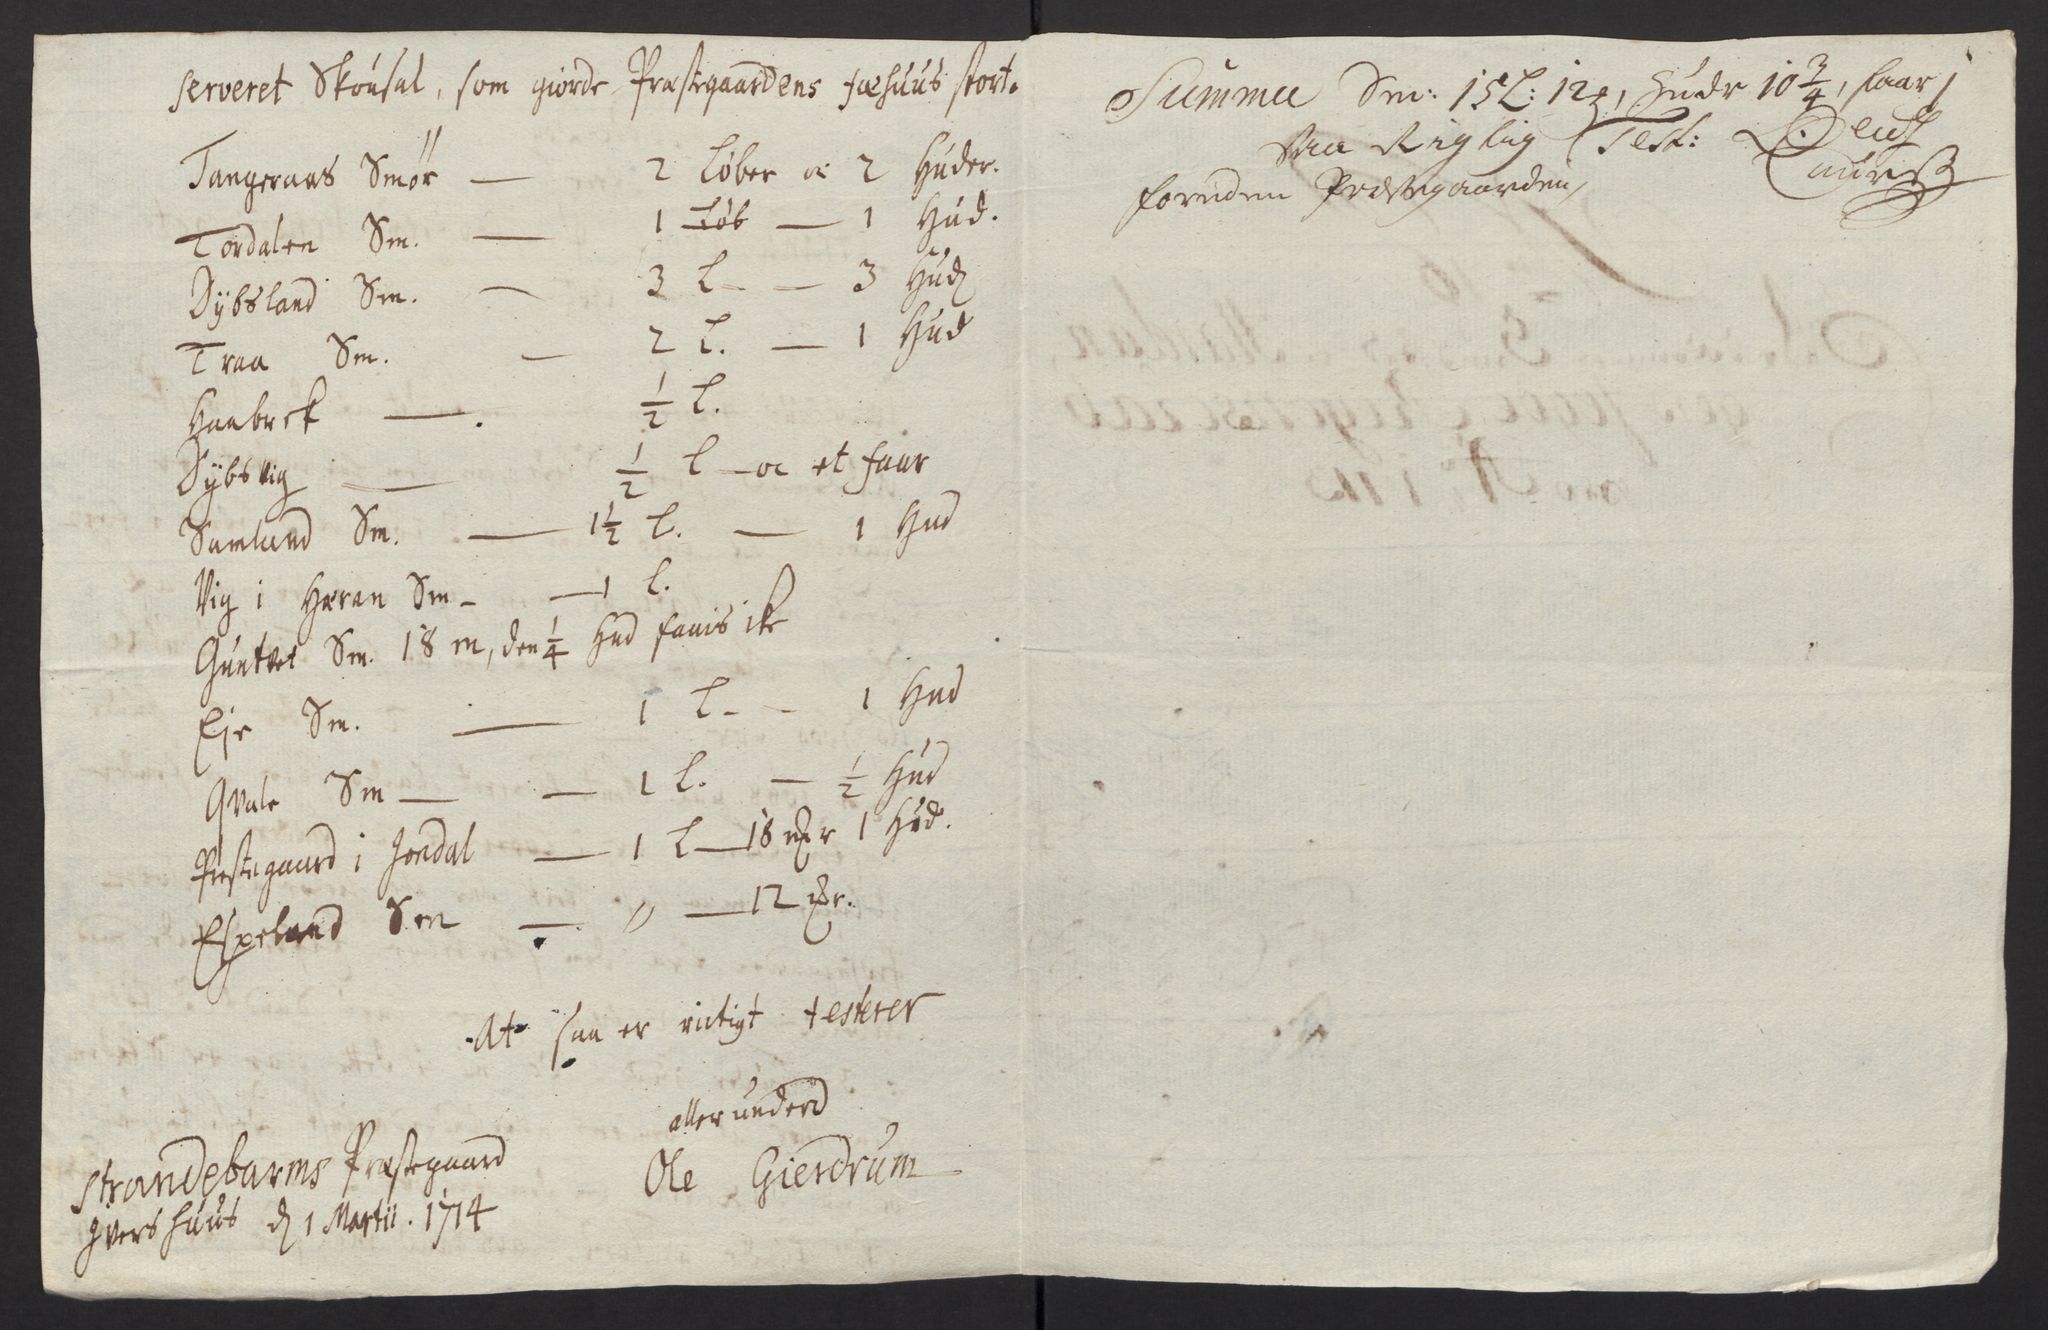 serveret Skousal, som giorde Præstegaardens fæhuus stort.
Tangeraas Smör — 2 Løber oc 2 Huder.
Tordalen Sm. — 1 Løb — 1 Hud.
Dybsland Sm. — 3 L — 3 Hud
Traa Sm. — 2 L. — 1 Hud
Haabrek — ½ L.
Dybsvig — ½ L — oc et faar
Samland Sm. — 1½ L. — 1 Hud
Vig i Hæran Sm — 1 L.
Guntvet Sm. 18 m, den ¼ Hud faais ike
Eje Sm. — 1 L — 1 Hud
Qvale Sm — 1 L. — ½ Hud
Præstegaard i Jondal — 1 L — 18 1 Hud.
Espeland Sm — " — 12
At saa er rictigt testerer
allerunderd
Ole Gierdrum
Strandebarms Præstegaard
Ivershuus d 1 Martii. 1714
Summa Sm: 15 L: 12, Hudr 10¾, faar 1
Saa Rigtig Test:
foruden Præstegaarden